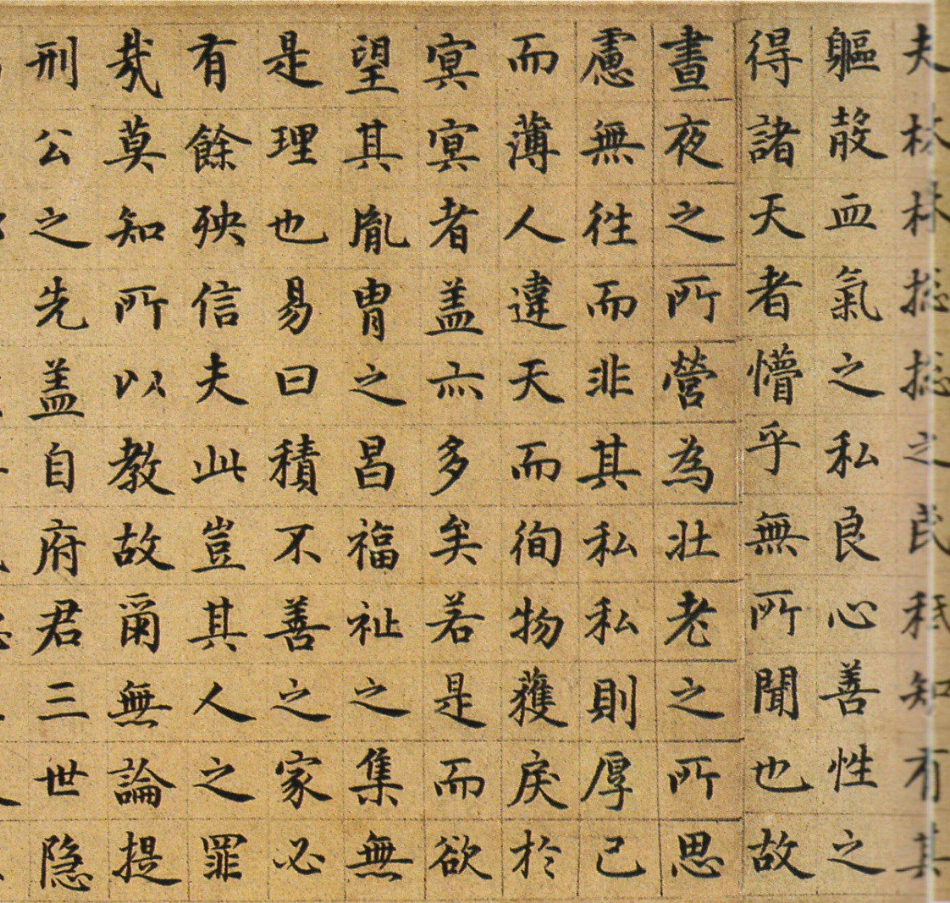 夫林林揔揔之民知有其
軀散血氣之私良心善性之
得諸天者懵乎無所聞也故
晝夜之所營為壯老之所思
慮無徃而非其私私則厚己
而薄人違天而徇物獲戾於
冥冥者盖亦多矣若是而欲
望其胤胄之昌福祉之集無
是理也易曰積不善之家必
有餘殃信夫此豈其人之罪
哉莫知所以教故爾無論提
刑公之先盖自府君三世隐